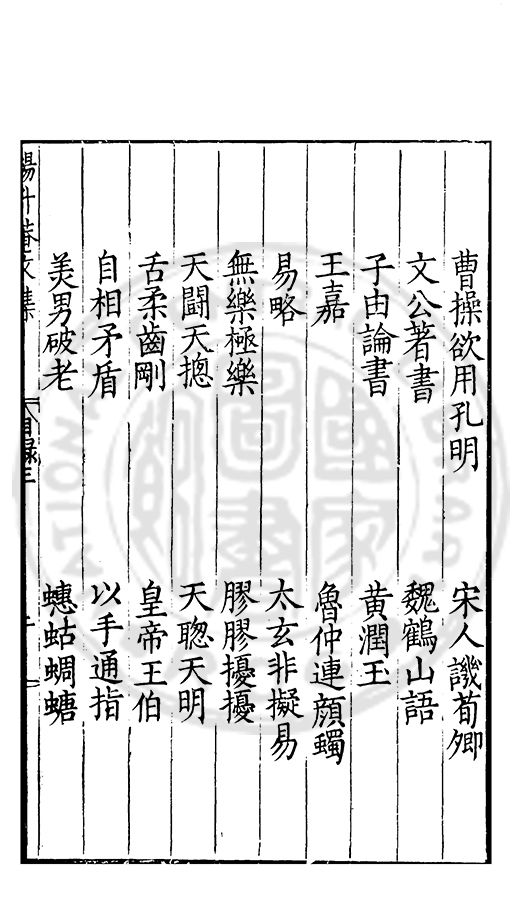 曹操欲用孔明 宋人譏荀卿
文公著書 魏鶴山語
子由論書 黄潤玉
王嘉 魯仲連顔蠋
易略 太玄非擬易
無樂極樂 膠膠擾擾
天闢天摠 天聰天明
舌柔齒剛 皇帝王伯
自相矛盾 以手通指
美男破老 蟪蛄蜩螗
目錄三